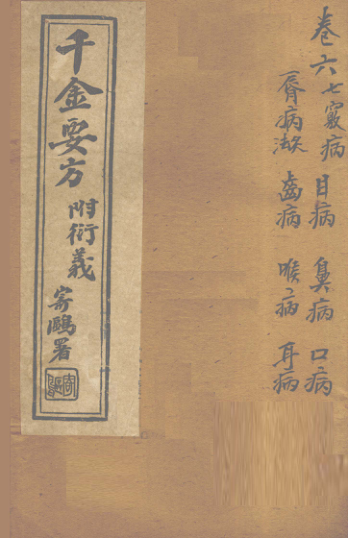 卷六七竅病 目病 鼻病 口病
脣病 齒病 喉病 耳病
千金要方 附衍義 寄鷗署